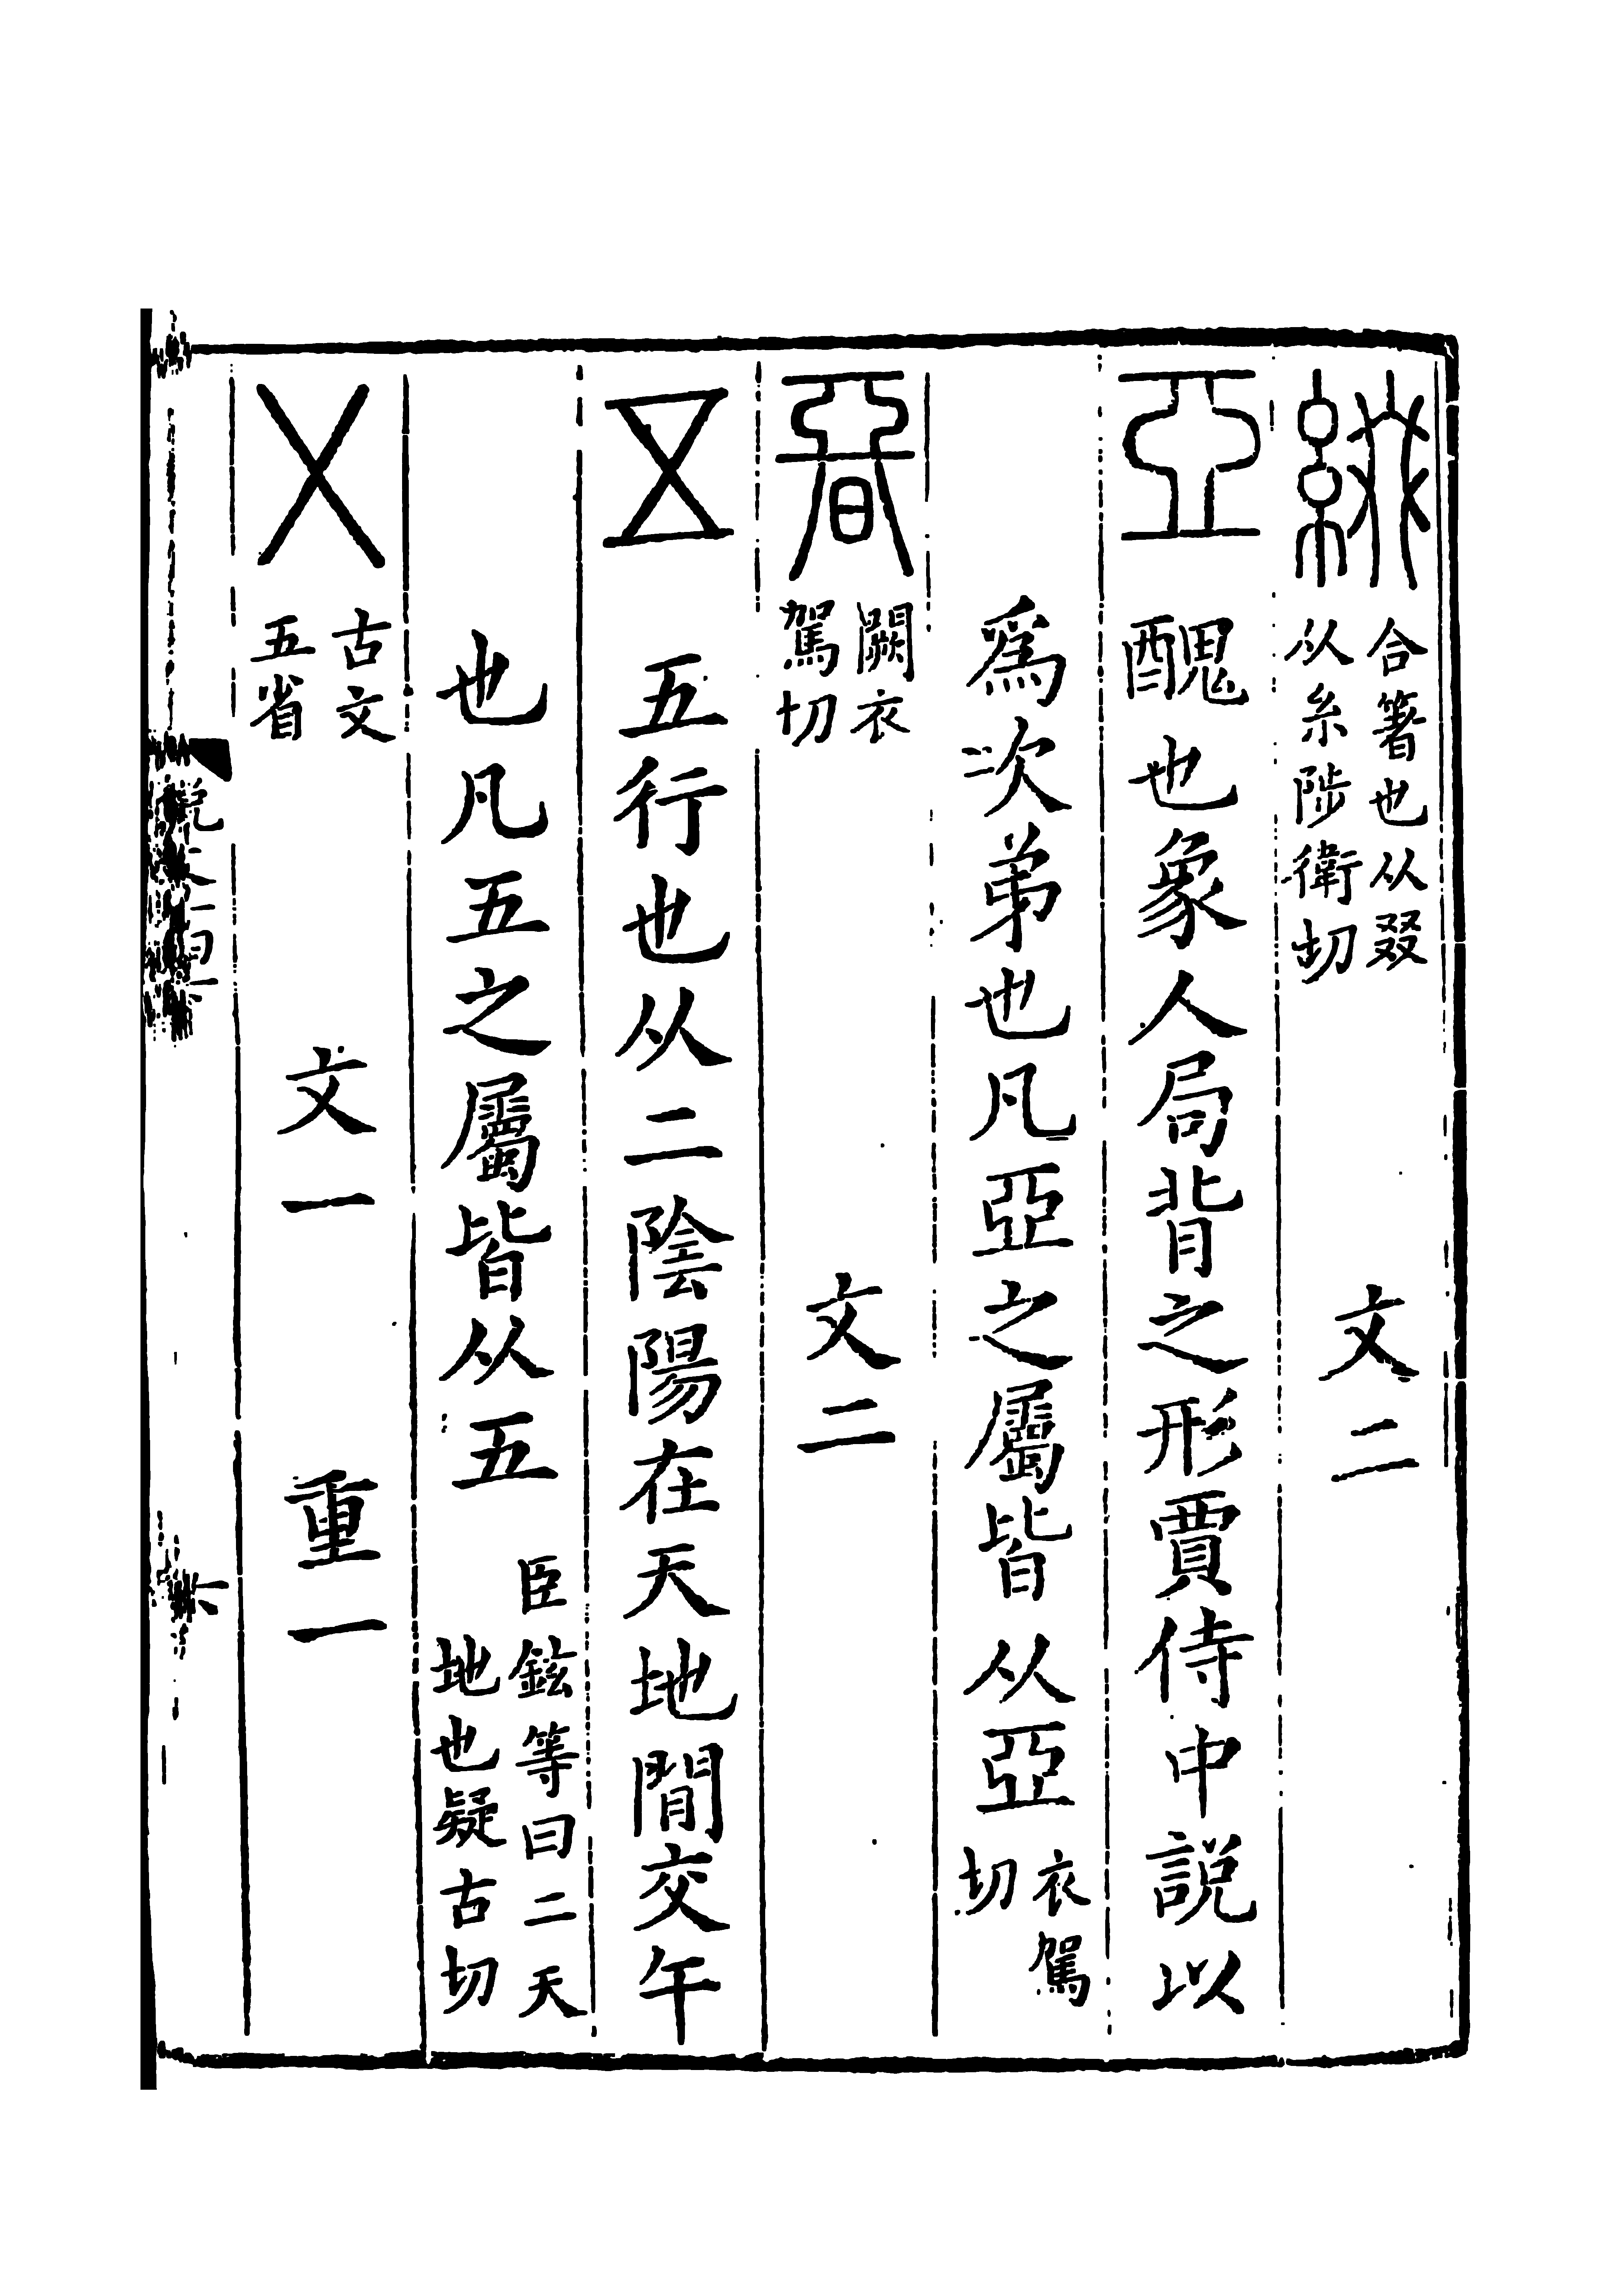 綴 合箸也从叕从糸陟衞切 文二
亞 醜也象人局背之形賈侍中説以
爲次弟也凡亞之屬皆从亞衣駕切
𠄑 闕衣駕切 文二
五 五行也从二陰陽在天地閒交午
也凡五之屬皆从五臣鉉等曰二天地也疑古切
㐅 古文五省 文一 重一